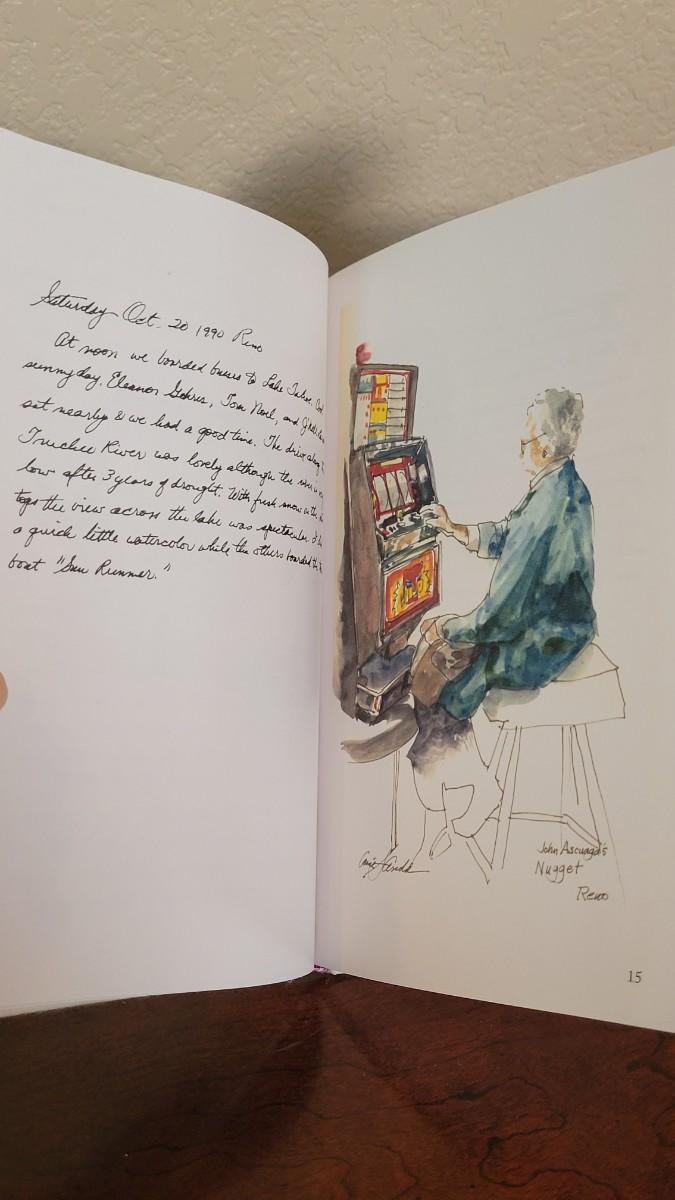 Saturday Oct. 20 1990 Reno
At noon we boarded buses to Lake Tahoe.
sunny day, Eleanor Gehres, Tom Noel, and
sat nearby & we had a good time. The drive along
Truckee River was lovely although the river
low after 3 years of drought. With fresh snow on the
tops the view across the lake was spectacular.
a quick little watercolor while the others boarded the
boat "Sun Runner."
John Ascuaga's
Nugget
Reno
15